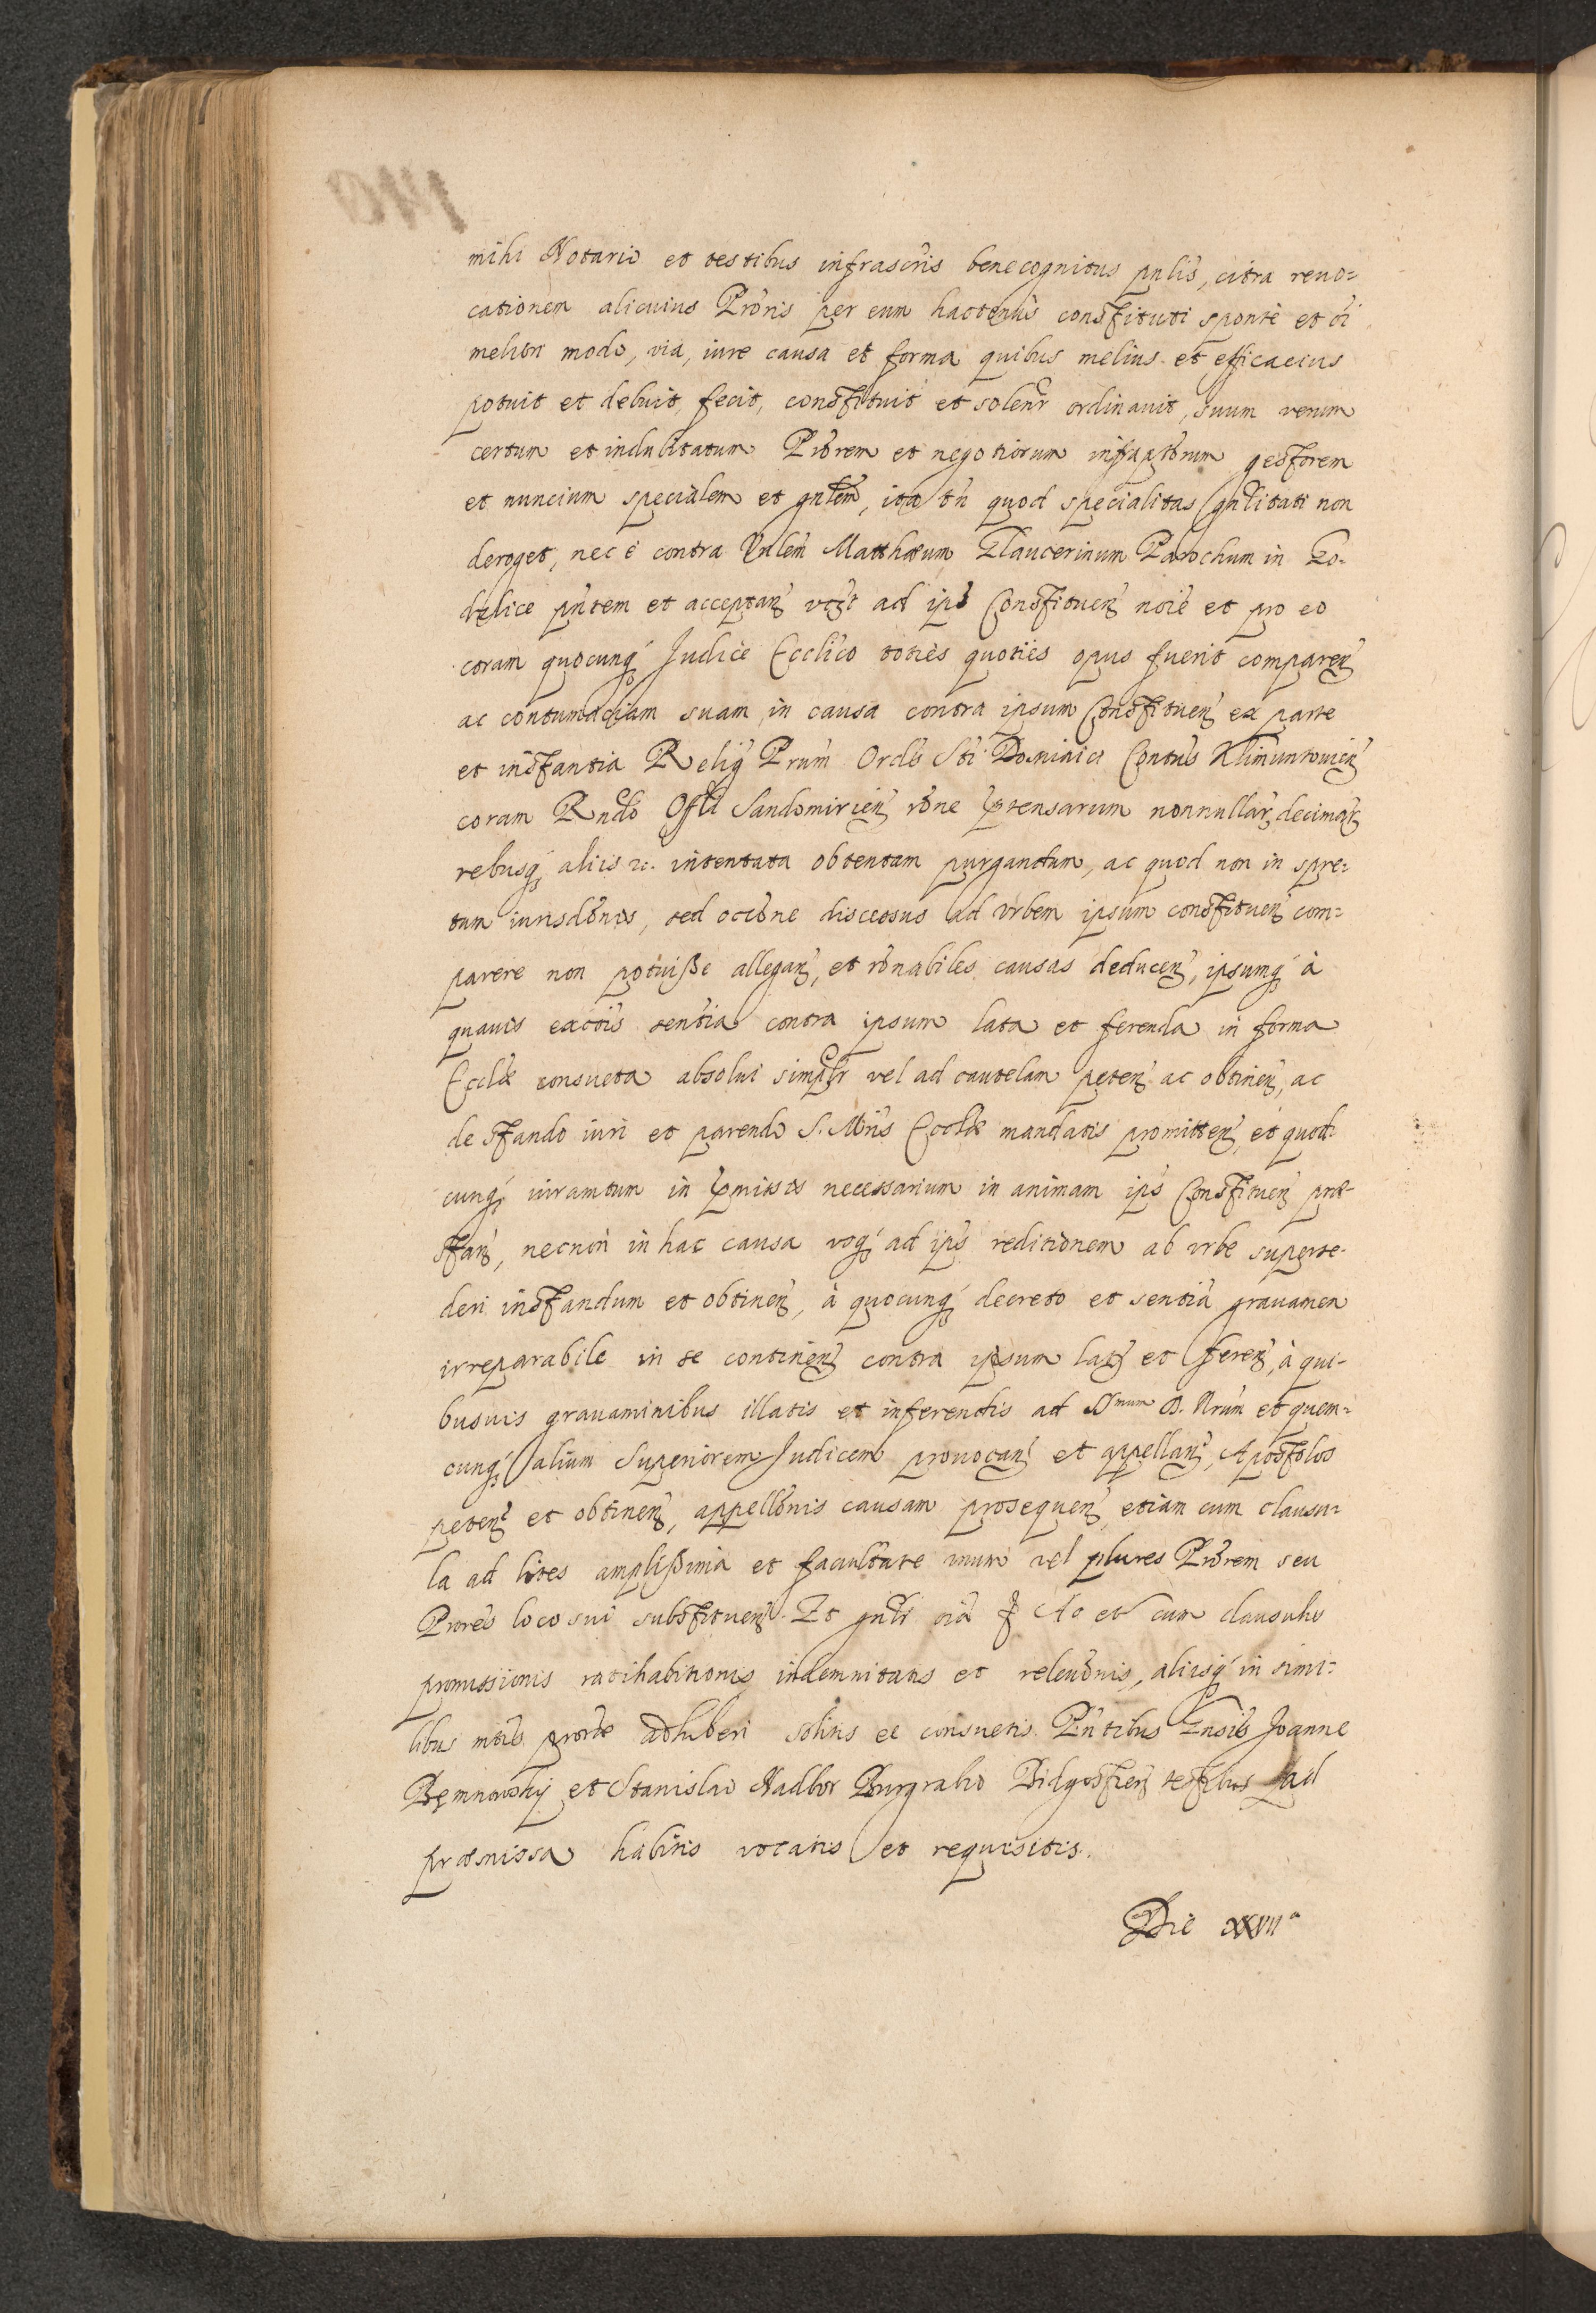 mihi Notario et testibus infrascris bene cognitus pnlis, citra reuo=
cationem alicuius Proris per eum hactenus constituti sponte et oi
meliori modo, via, iure causa et forma quibus melius et efficacius
potuit et debuit, fecit, constituit et solenr ordinauit, suum verum
certum et indubitatum Prorem et negotiorum infraptorum gestorem
et nuncium specialem et gnlem, ita tn quod specialitas gnlitati non
deroget, nec è contra Vnlem Matthæum Parochum in
pntem et acceptan vz ad ips Constituen noie et pro eo
coram quocunq Judice Ecclico toties quoties opus fuerit comparen
ac contumaciam suam in causa contra ipsum Constituen ex parte
et instantia Relig Prum Ordis Sti Dominici Contus Klimuntouien
coram Rndo Offli Sandomirien rone prtensarum nonnullar decimar
rebusq aliis &c. intentata obtentam purgandum, ac quod non in spre=
tum iurisdonis, sed occone discessus ad vrbem ipsum constituen com=
parere non potuiße allegan, et ronabiles causas deducen, ipsumq à
quauis exctis sentia contra ipsum lata et ferenda in forma
Ecclæ consueta absolui simplr vel ad cautelam peten ac obtinen, ac
de stando iuri et parendo S. Mris Ecclæ mandatis promitten, et quod=
cunq iuramtum in prmissis necessarium in animam ips Constituen præ-
stan, necnon in hac causa vsq ad ips reditionem ab vrbe superse-
deri instandum et obtinen, à quocunq decreto et sentia grauamen
irreparabile in se continen contra ipsum lat et feren, à qui-
busuis grauaminibus illatis et inferendis ad Smum D. Nrum et quem=
cunq alium Superiorem Judicem prouocan et appellan, Apostolos
peten et obtinen, appellonis causam prosequen, etiam cum clausu=
la ad lites ampliẞima et facultate vnum vel plures Prorem seu
Prores loco sui substituen. Et gnlr oia et cum clausulis
promissionis ratihabitionis indemnitatis et releuonis, aliisq in simi=
libus adhiberi solitis et consuetis. Pntibus Joanne
et Stanislao Nadbor Burgrabio Bidgostien testibus ad
præmissa habitis vocatis et requisitis.
Die XXVIIa